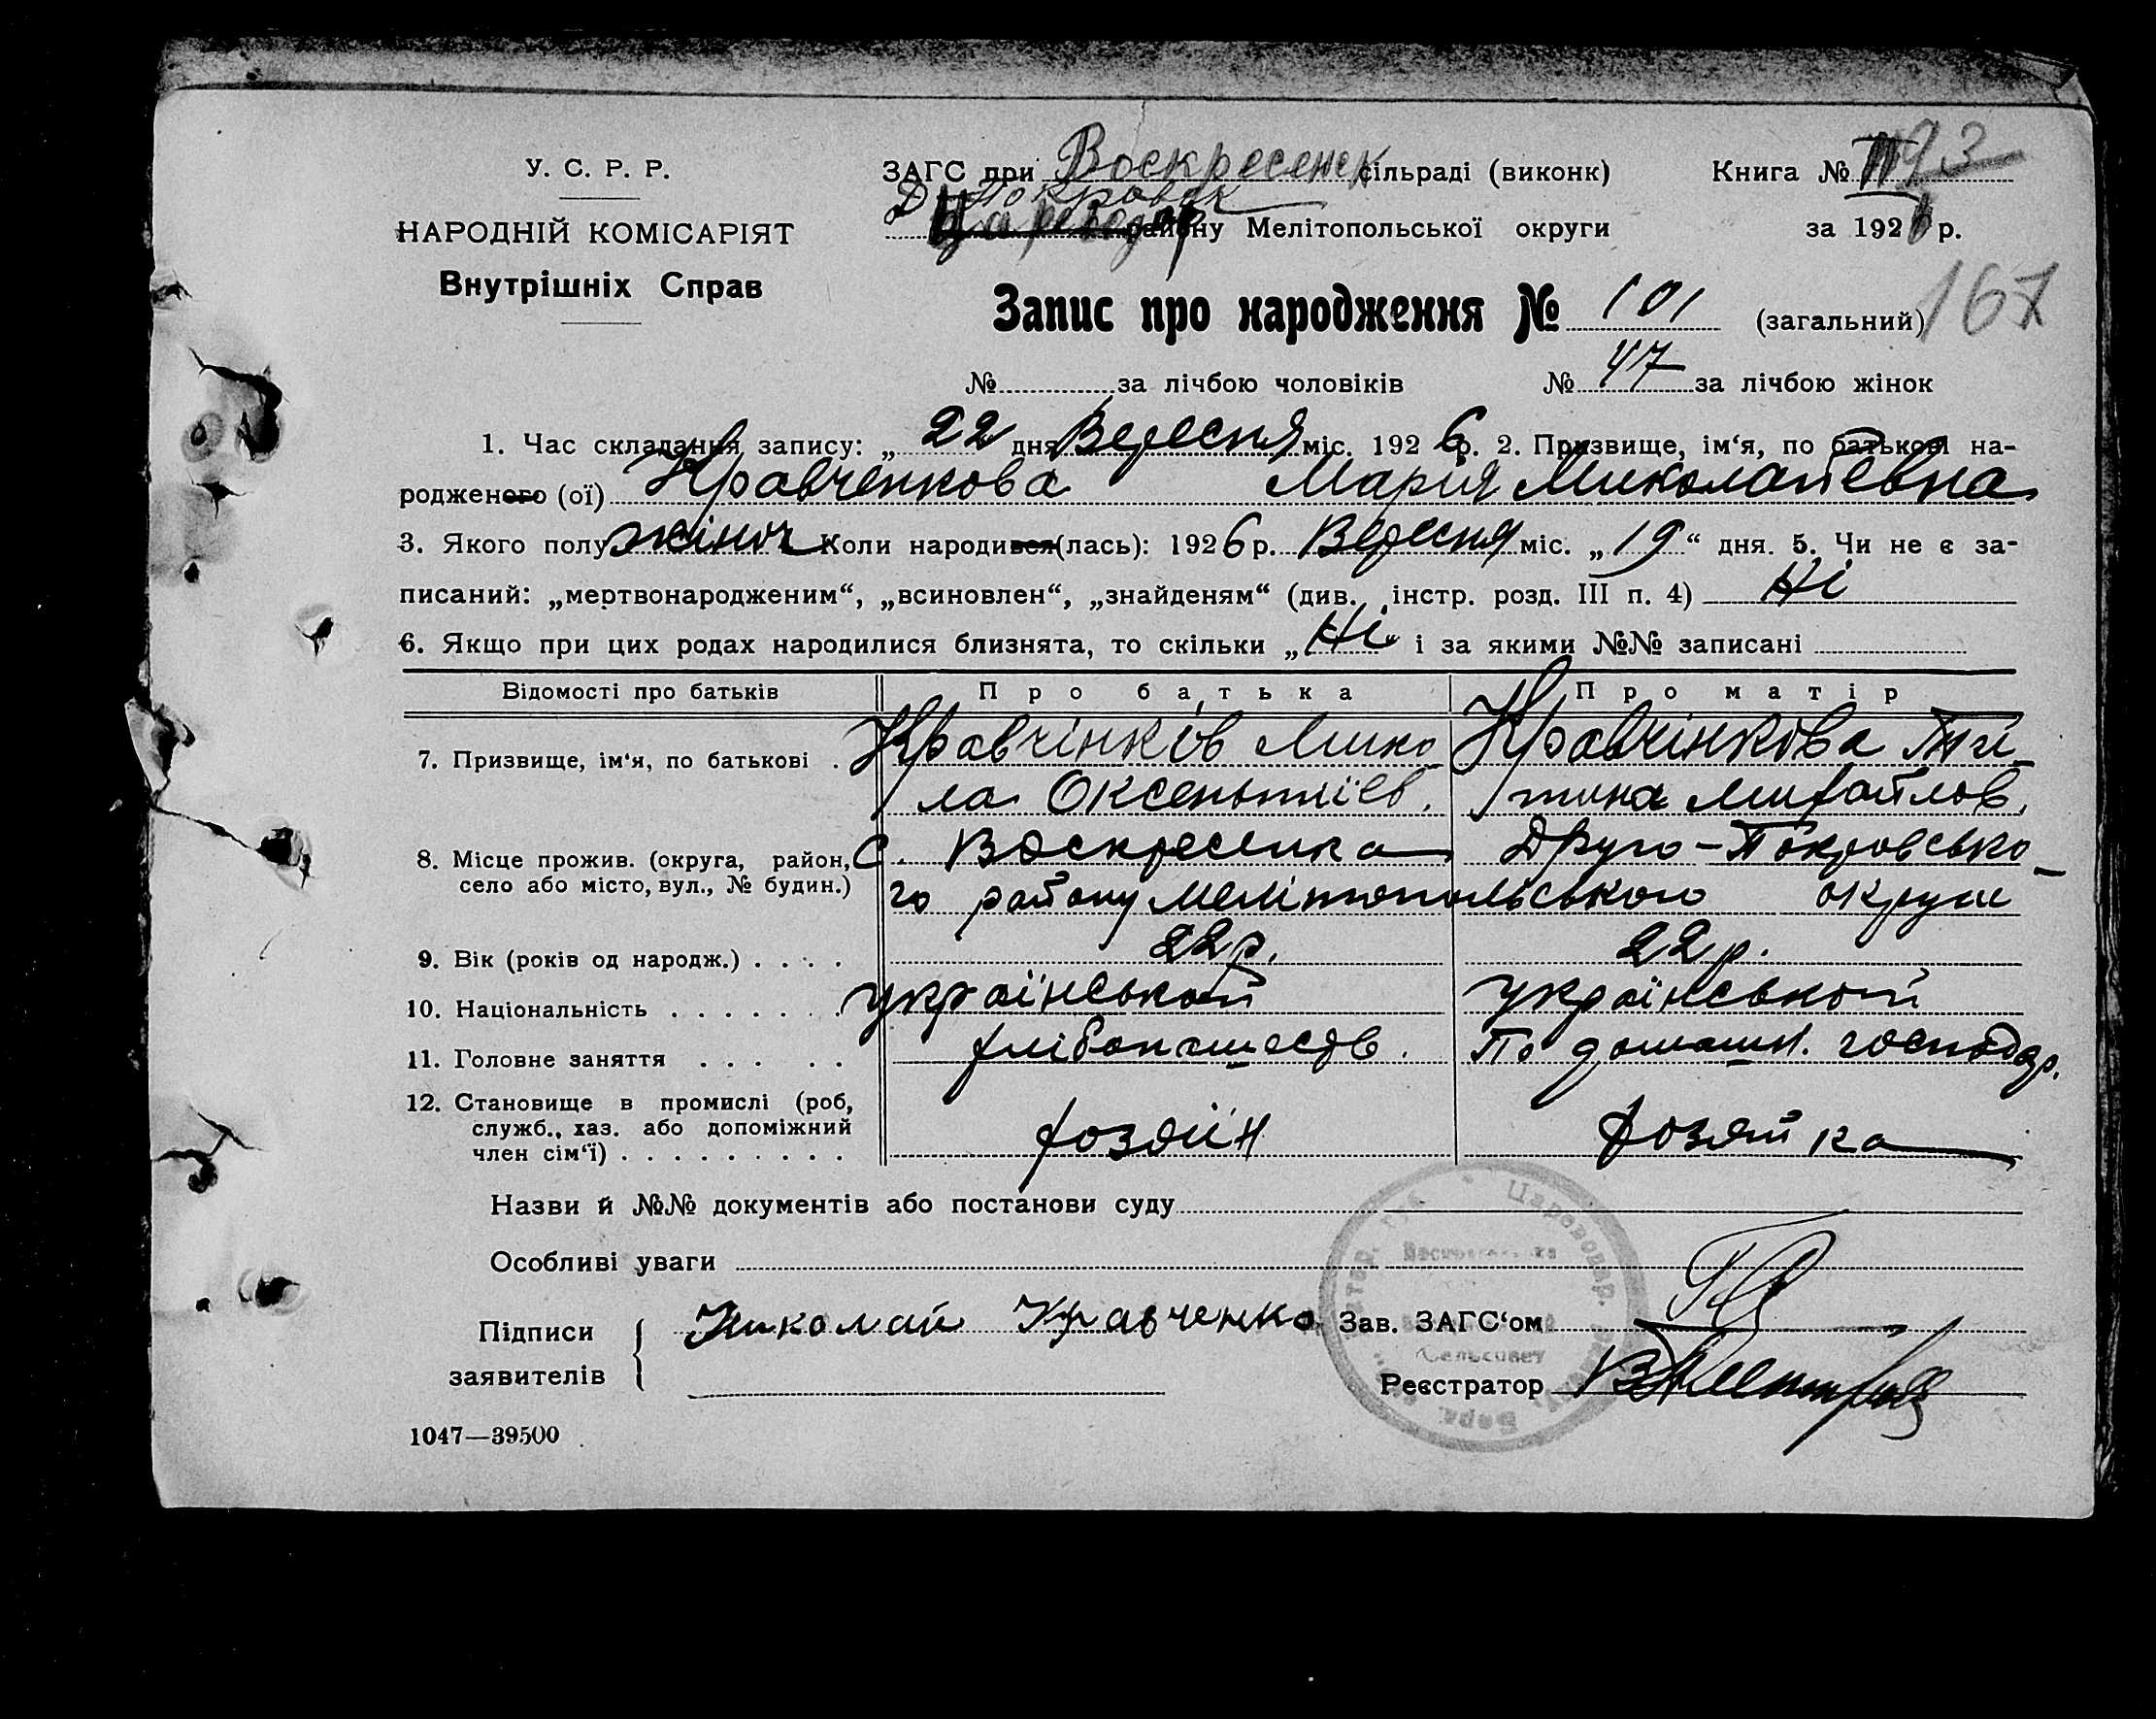 У. С. Р. Р.
НАРОДНІЙ КОМІСАРІЯТ
Внутрішніх Справ
ЗАГС при Воскресенск сільраді (виконк)
Д-Покровск
Царевода району Мелітопольської округи
Книга № 93
за 1926 р.
167
Запис про народження № 101 (загальний)
№ за лічбою чоловіків № 47 за лічбою жінок
1. Час складання запису: „22 дня Вересня міс. 1926 р. 2. Призвище, ім‘я, по батькові на-
родженого (ої) Кравченкова Марія Миколаївна
3. Якого полу жіноч Коли народився (лась): 1926 р. Вересня міс. „19“ дня. 5. Чи не є за-
писаний: „мертвонародженим“, „всиновлен“, „знайденям“ (див. інстр. розд. III п. 4) Ні
6. Якщо при цих родах народилися близнята, то скільки „Ні“ і за якими №№ записані
Відомості про батьків Про батька Про матір
7. Призвище, ім‘я, по батькові . Кравчінків Мико Кравчінкова
ла Оксентіїв. Михайлов.
8. Місце прожив. (округа, район, с. Воскресенка Друго-Покровсько-
село або місто, вул., № будин.) го району Мелітопольського округи
9. Вік (років од народж.) . . . . 22 р. 22 р.
10. Національність . . . . . . . український український
11. Головне заняття . . . . . хлібопашеств. По домашн. господар.
12. Становище в промислі (роб, хозяїн хозяйка
служб., хаз. або допоміжний
член сім‘ї) . . . . . . . . .
Назви й №№ документів або постанови суду
Особливі уваги
Підписи Николай Кравченко Зав. ЗАГС‘ом
заявителів Реєстратор
Цареводар.
Сельсовет
1047—39500